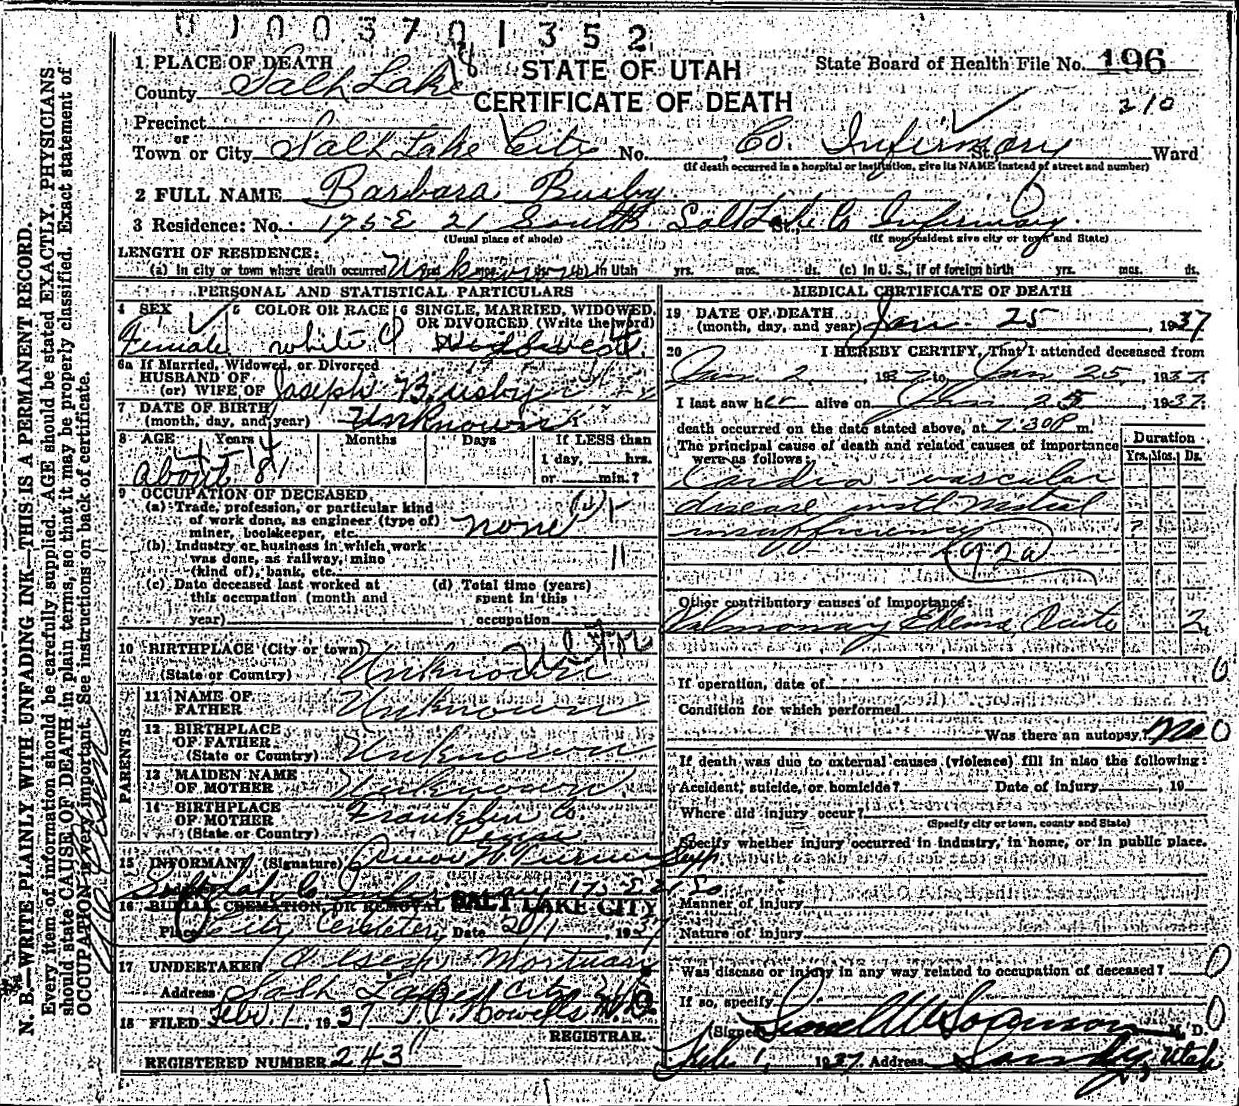 0 1 0 0 3 7 0 1 3 5 2
1 PLACE OF DEATH
STATE OF UTAH
State Board of Health File No. 196
County Salt Lake 18
CERTIFICATE OF DEATH
210
Precinct
or
Town or City Salt Lake City No. Co. Infirmary St., Ward
(If death occurred in a hospital or institution, give its NAME instead of street and number)
2 FULL NAME Barbara Busby
3 Residence: No. 175 E 21 South Salt Lake Co Infirmary
(Usual place of abode) (If nonresident give city or town and State)
LENGTH OF RESIDENCE:
(a) In city or town where death occurred Unknown in Utah yrs. mos. ds. (c) in U. S., if of foreign birth yrs. mos. ds.
PERSONAL AND STATISTICAL PARTICULARS
4 SEX
Female
5 COLOR OR RACE
white
6 SINGLE, MARRIED, WIDOWED, OR DIVORCED (Write the word)
Widowed
6a If Married, Widowed, or Divorced
HUSBAND OF
(or) WIFE OF Joseph Busby
7 DATE OF BIRTH
(month, day, and year) Unknown
8 AGE Years Months Days If LESS than
1 day, hrs.
or min.?
About 81
9 OCCUPATION OF DECEASED
(a) Trade, profession, or particular kind
of work done, as engineer (type of)
miner, bookkeeper, etc. none
(b) Industry or business in which work
was done, as railway, mine
(kind of), bank, etc.
11
(c) Date deceased last worked at
this occupation (month and
year)
(d) Total time (years)
spent in this
occupation
10 BIRTHPLACE (City or town)
(State or Country) Unknown
PARENTS
11 NAME OF
FATHER Unknown
12 BIRTHPLACE
OF FATHER
(State or Country) Unknown
13 MAIDEN NAME
OF MOTHER Unknown
14 BIRTHPLACE
OF MOTHER
(State or Country) Franklin Co.
Penna
15 INFORMANT (Signature) Supt
175 E 21 So
16 BURIAL, CREMATION, OR REMOVAL SALT LAKE CITY
Place City Cemetery Date 2/1, 1937
17 UNDERTAKER Mortuary
Address Salt Lake City Utah
18 FILED Feb. 1, 1937 T. J. Howells M.D.
REGISTRAR.
REGISTERED NUMBER 243
MEDICAL CERTIFICATE OF DEATH
19 DATE OF DEATH
(month, day, and year) Jan. 25, 1937
20 I HEREBY CERTIFY, That I attended deceased from
Jan 2, 1937 to Jan 25, 1937.
I last saw her alive on Jan 25, 1937.
death occurred on the date stated above, at 7:30 P m.
The principal cause of death and related causes of importance
were as follows:
Duration
Yrs. Mos. Ds.
Cardio vascular
disease with Mitral
insufficiency ?
92a
Other contributory causes of importance:
Pulmonary Edema, Acute 2
If operation, date of
0
Condition for which performed
Was there an autopsy? no 0
If death was due to external causes (violence) fill in also the following:
Accident, suicide, or homicide? Date of injury, 19
Where did injury occur?
(Specify city or town, county and State)
Specify whether injury occurred in industry, in home, or in public place.
Manner of injury
Nature of injury
Was disease or injury in any way related to occupation of deceased? 0
If so, specify 0
(Signed) Sorenson M. D.
Feb 1, 1937. Address Sandy, Utah
N. B.—WRITE PLAINLY WITH UNFADING INK—THIS IS A PERMANENT RECORD.
Every item of information should be carefully supplied. AGE should be stated EXACTLY. PHYSICIANS
should state CAUSE OF DEATH in plain terms, so that it may be properly classified. Exact statement of
OCCUPATION is very important. See instructions on back of certificate.